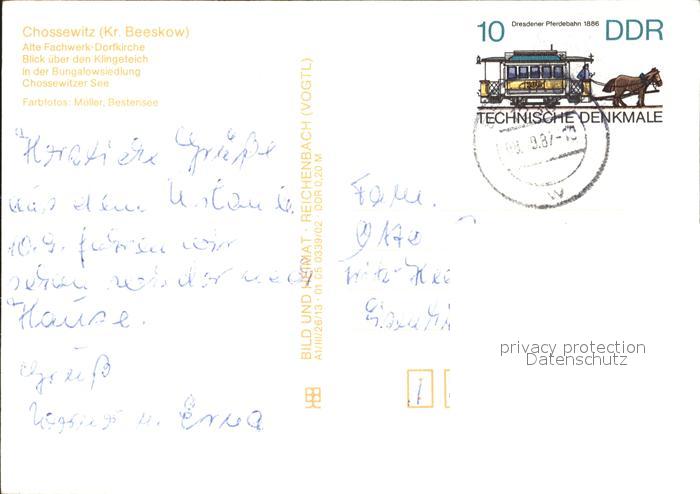 Chossewitz (Kr. Beeskow)
Alte Fachwerk-Dorfkirche
Blick über den Klingeteich
In der Bungalowsiedlung
Chossewitzer See
Farbfotos: Möller, Bestensee
Herzliche Grüße
aus dem Urlaub.
10.9. fahren wir
schon wieder nach
Hause.
Gruß
u. Erna
BILD UND HEIMAT · REICHENBACH (VOGTL)
A1/III/26/13 · 01 05 0339/02 · DDR 0,20 M
10
Dresdener Pferdebahn 1886
DDR
TECHNISCHE DENKMALE
9.87-
Fam.
Otto
privacy protection
Datenschutz